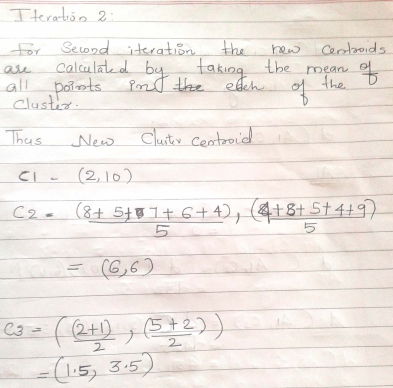 Iteration 2:
For Second iteration the new centroids
are calculated by taking the mean of
all points in the each of the
Cluster.
Thus New Cluster centroid
C1 - (2,10)
C2 = (8+5+7+6+4)/5, (4+8+5+4+9)/5
= (6,6)
C3 = ((2+1)/2, (5+2)/2)
= (1.5, 3.5)